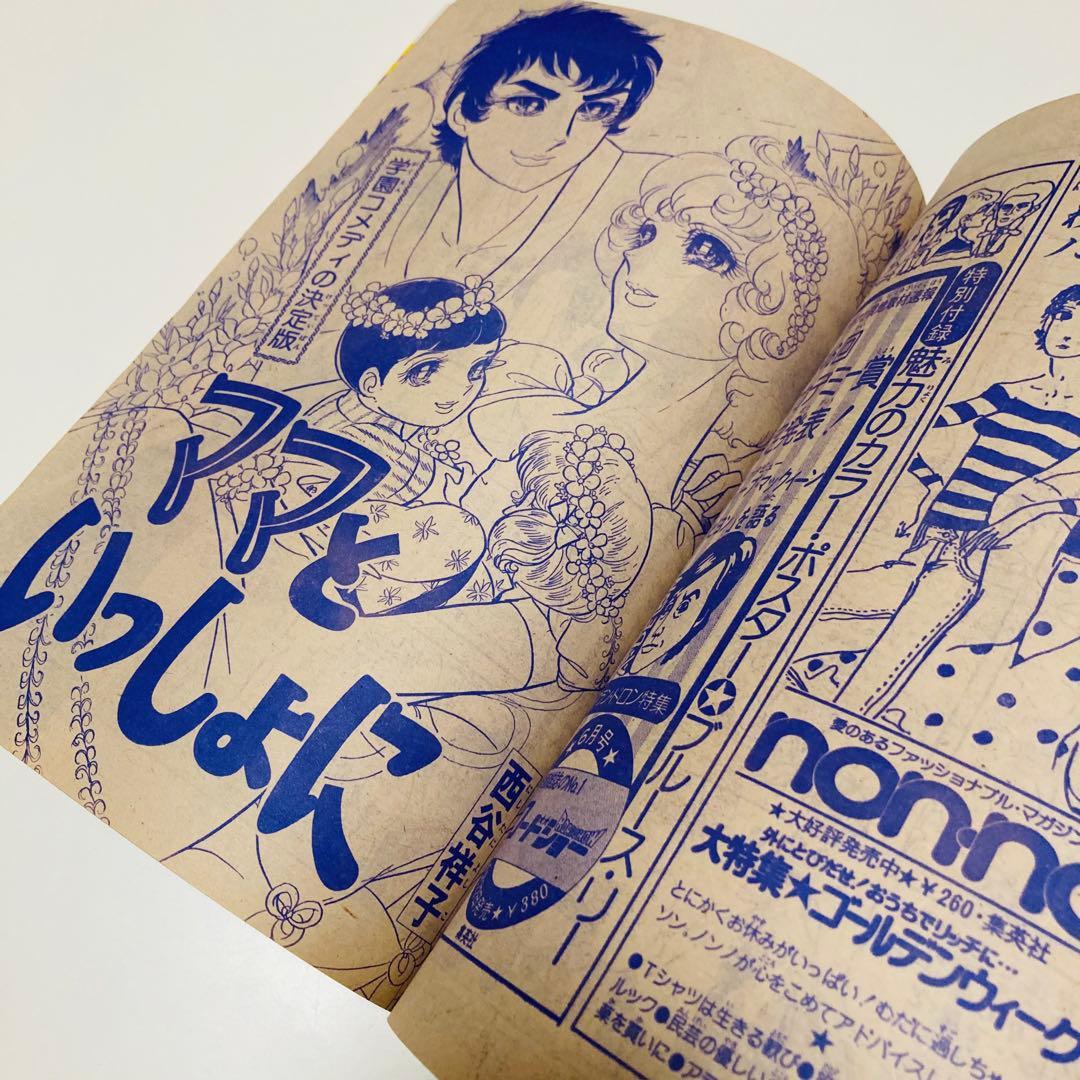 学園コメディの決定版
ママと
いっしょに
西谷祥子
特別付録
魅力のカラー・ポスター★ブルース・リー
賞
発表
を語る
ドロン特集
★6月号★
No.1
発売★¥380
集英社
愛のあるファッショナブル・マガジン
non・no
★大好評発売中★¥260・集英社
外にとびだせ!おうちでリッチに…
大特集★ゴールデンウィーク
とにかくお休みがいっぱい!むだに過しちゃ
ソン。ノンノが心をこめてアドバイスし
●Tシャツは生きる歓び●
ルック●民芸の優しい
巣を買いに●ア